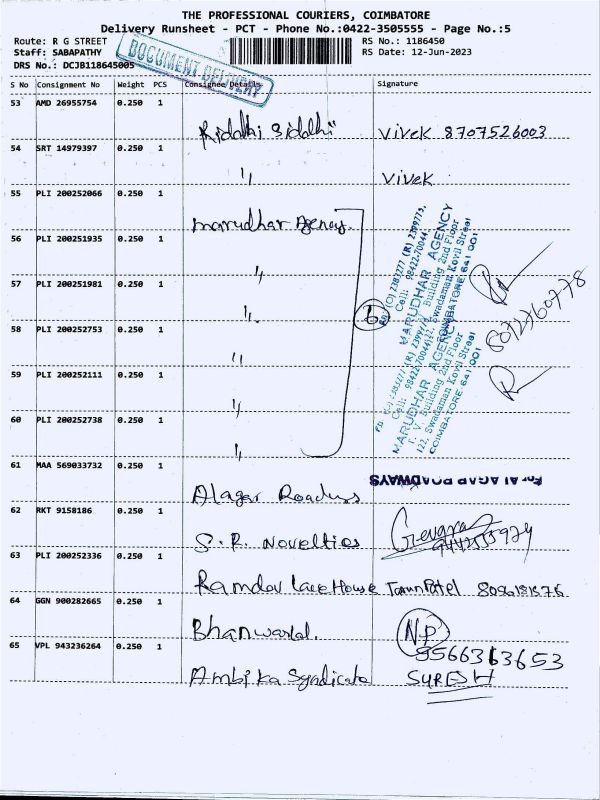 THE PROFESSIONAL COURIERS, COIMBATORE
Delivery Runsheet - PCT - Phone No.:0422-3505555 - Page No.:5
Route: R G STREET RS No.: 1186450
Staff: SABAPATHY RS Date: 12-Jun-2023
DRS No.: DCJB118645005
DOCUMENT DELIVERY
S No Consignment No Weight PCS Consignee Details Signature
53 AMD 26955754 0.250 1
Riddhi Siddhi Vivek 8707526003
54 SRT 14979397 0.250 1
" Vivek
55 PLI 200252066 0.250 1
Marudhar Agency.
56 PLI 200251935 0.250 1
"
57 PLI 200251981 0.250 1
"
6
58 PLI 200252753 0.250 1
"
59 PLI 200252111 0.250 1
"
60 PLI 200252738 0.250 1
"
MARUDHAR AGENCY
T. V. Building 2nd Floor
122, Swadaman Kovil Street
COIMBATORE 641 001
MARUDHAR AGENCY
T. V. Building 2nd Floor
122, Swadaman Kovil Street
COIMBATORE 641 001
61 MAA 569033732 0.250 1
For ALAGAR ROADWAYS
Alagar Roadways
62 RKT 9158186 0.250 1
S.R. Novelties
63 PLI 200252336 0.250 1
Ramdev Lace House
64 GGN 900282665 0.250 1
Bhanwarlal. NP
9566363653
65 VPL 943236264 0.250 1
Ambika Syndicate SURESH